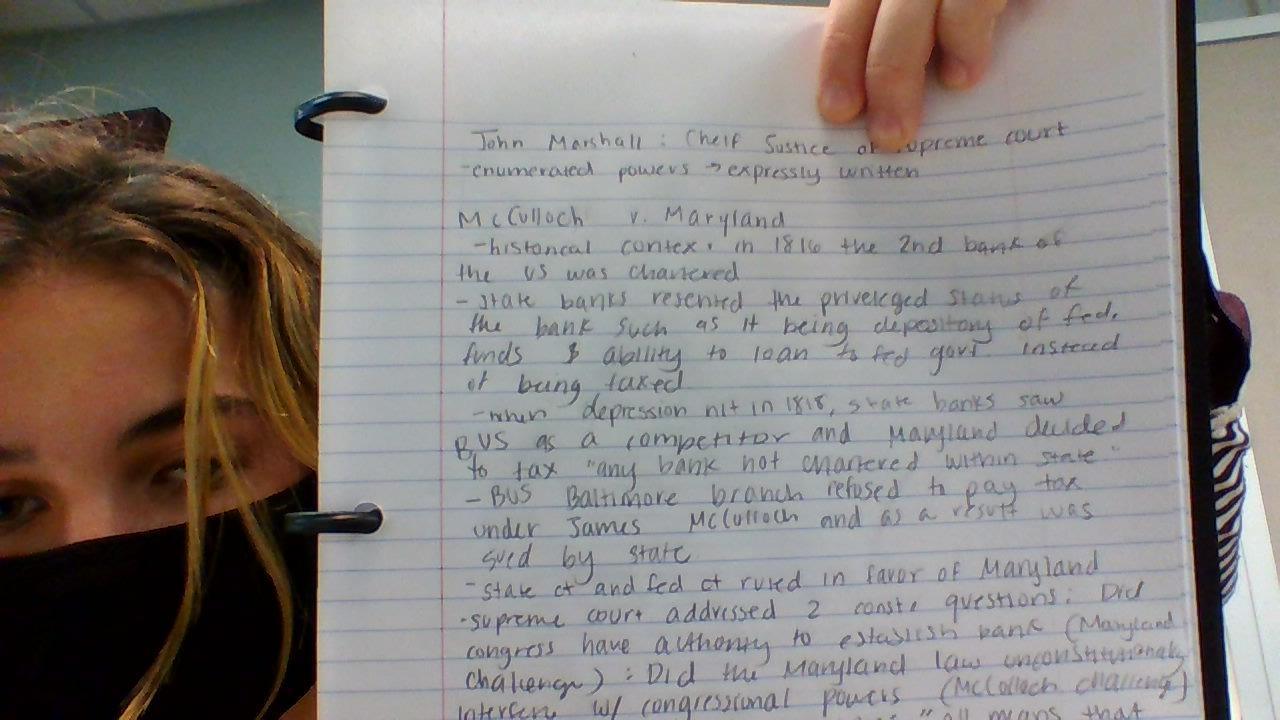 John Marshall : Cheif Justice of supreme court
-enumerated powers → expressly written
McCulloch v. Maryland
-historical contex. in 1816 the 2nd bank of
the US was chartered
- state banks resented the priveleged status of
the bank such as it being depository of fed.
funds $ ability to loan to fed govt instead
of being taxed
-when depression hit in 1818, state banks saw
BUS as a competitor and Maryland decided
to tax "any bank not chartered within state"
- BUS Baltimore branch refused to pay tax
under James McCulloch and as a result was
sued by state
- state ct and fed ct ruled in favor of Maryland
-supreme court addressed 2 questions: Did
congress have authority to establish bank (Maryland
challenge) : Did the Maryland law unconstitutionally
interfere w/ congressional powers (McColloch challenge)
"all means that